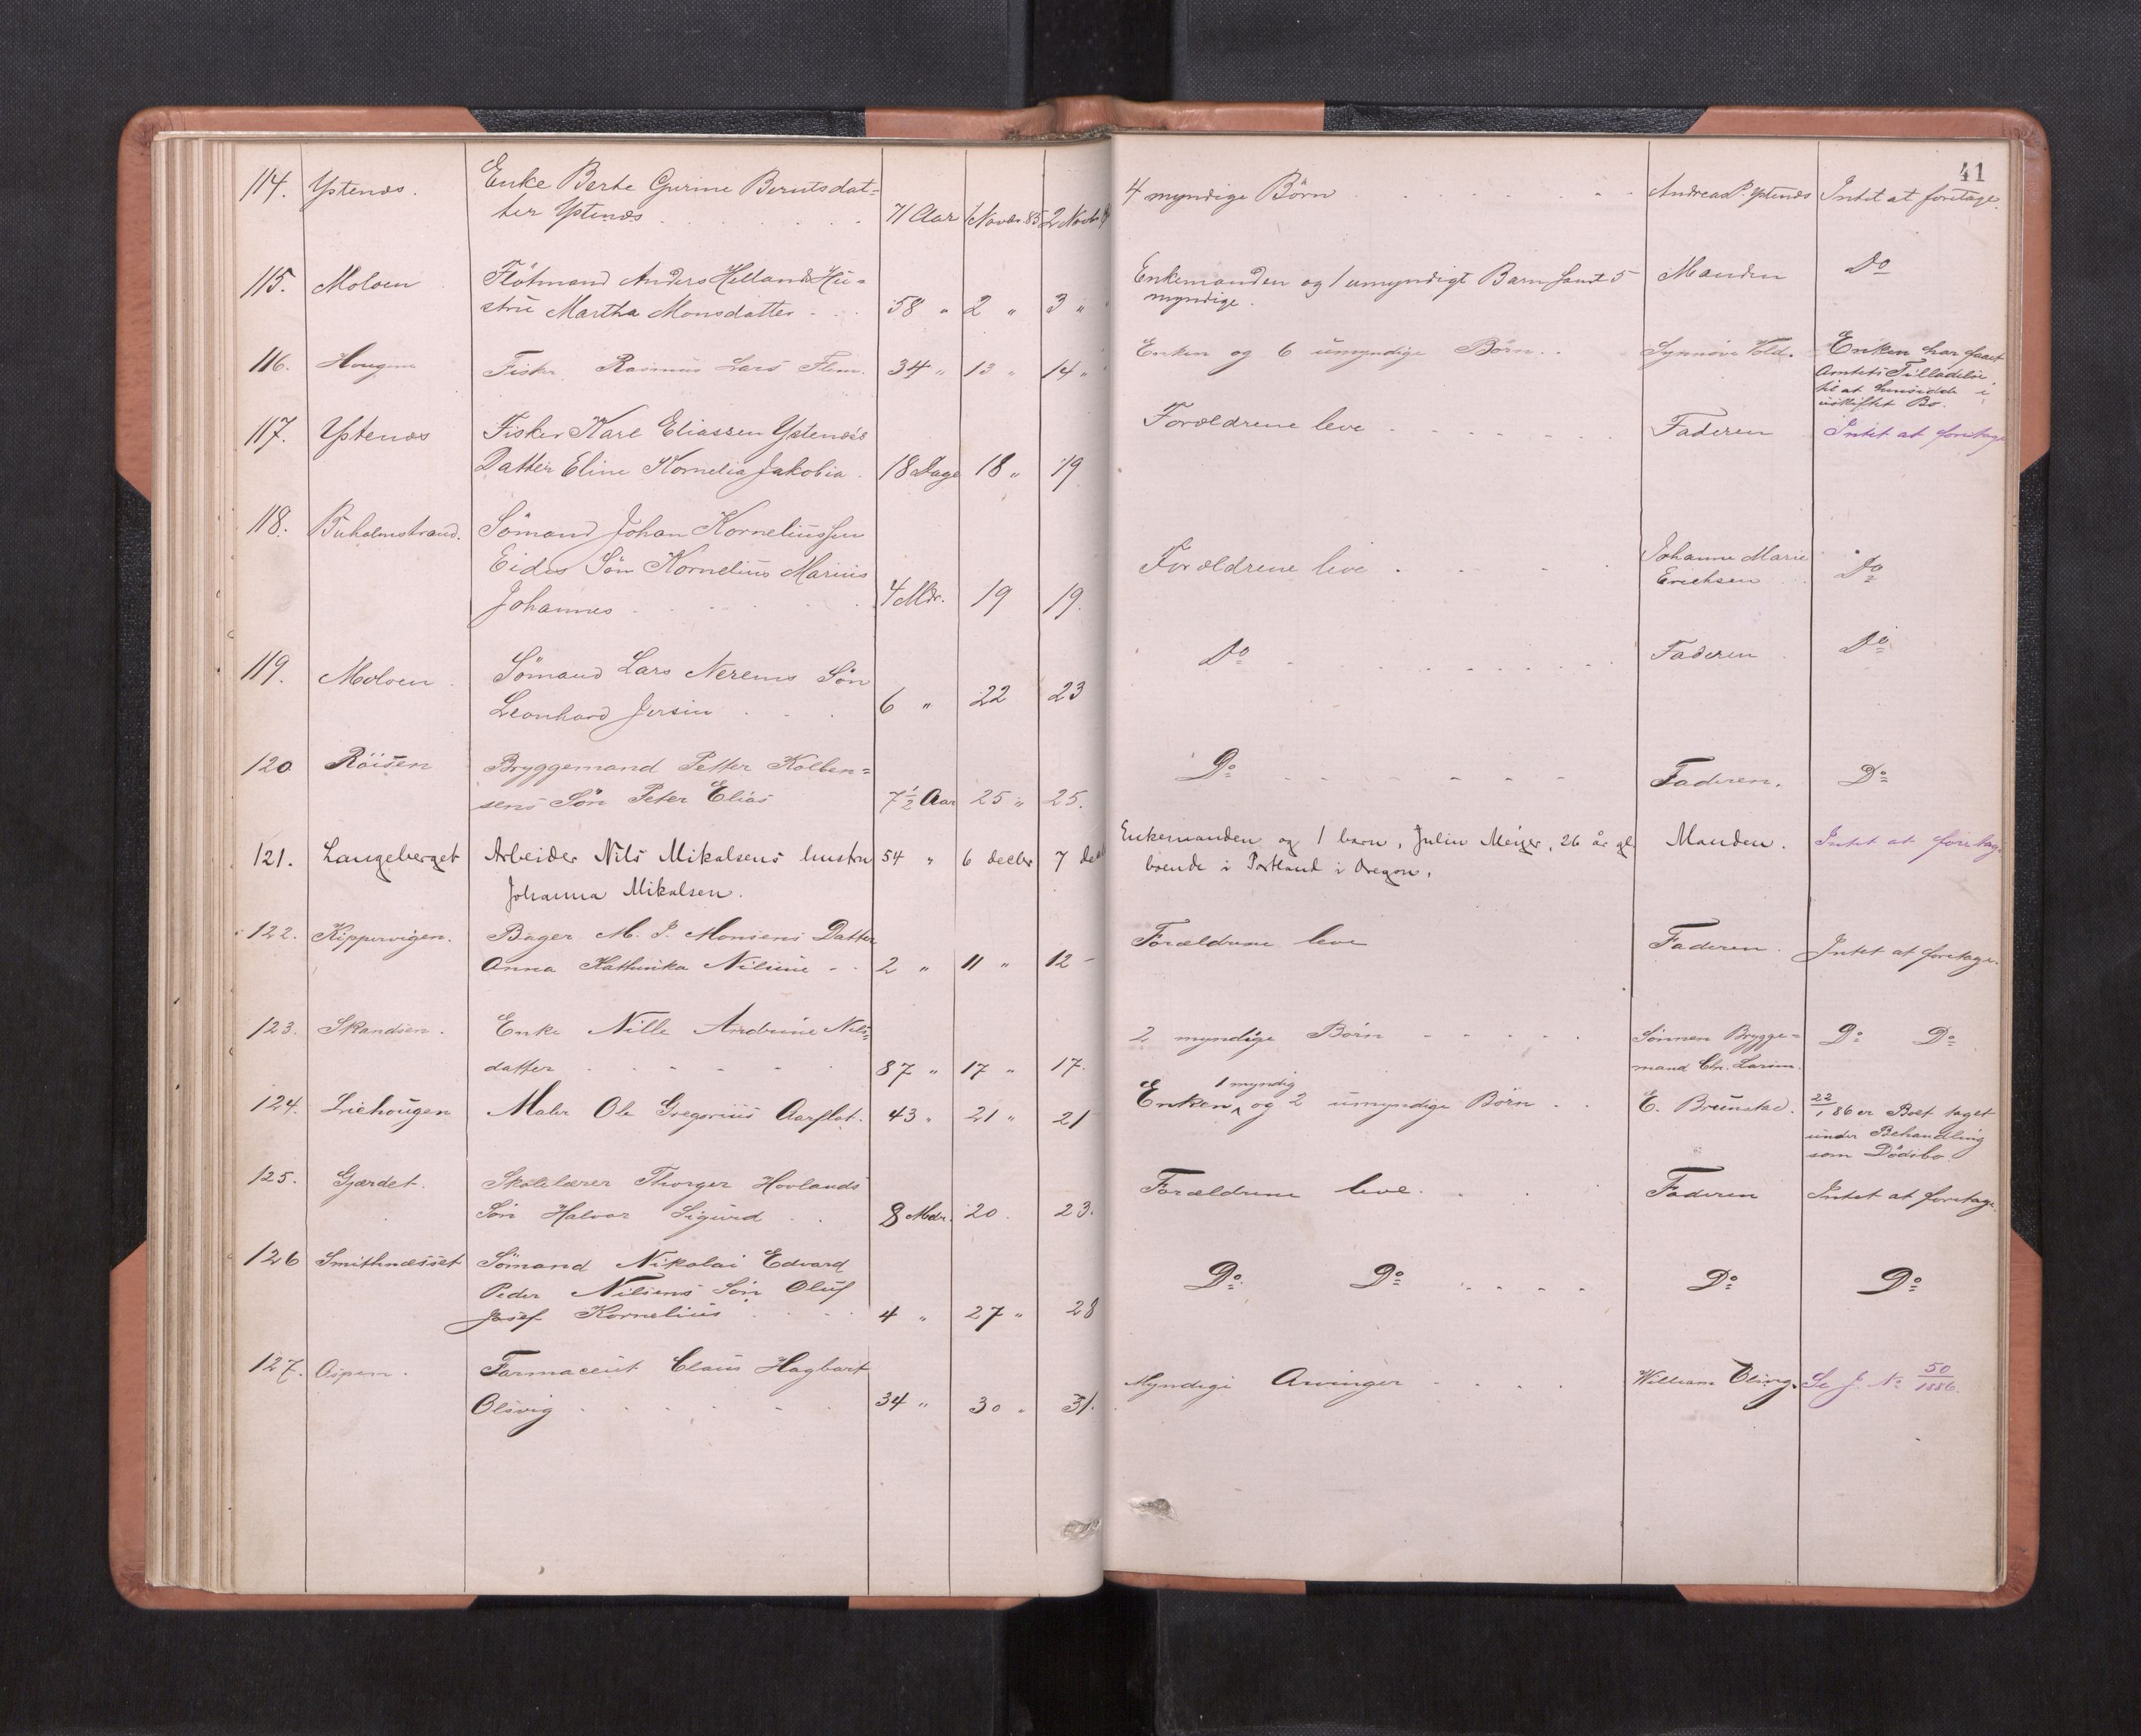 41
114. Ystenæs. Enke Berte Gurine Berntsdat=
ter Ystenæs 71 Aar 1 Novbr 85 2 Novb
4 myndige Börn Andreas P. Ystenæs Intet at foretage.
115. Moloen Flötmand Anders Hellands Hu=
stru Martha Monsdatter 58 " 2 " 3 "
Enkemanden og 1 umyndigt Barn samt 5 Manden Do
myndige.
116. Hougen Fisker Rasmus Lars Flem. 34 " 13 " 14 "
Enken og 6 umyndige Börn. Synnöve Vold. Enken har faaet
Amtets Tilladelse
til at hensidde i
uskiftet Bo.
117. Ystenæs Fisker Karl Eliassen Ystenæs's
Datter Eline Kornelia Jakobia 18 Dage 18 " 19
Forældrene leve Faderen Intet at foretage
118. Buholmstrand. Sömand Johan Korneliussen
Eides Sön Kornelius Marius
Johannes 4 Mdr. 19 19.
Forældrene leve Johanne Marie
Erichsen Do
119. Moloen Sömand Lars Nerems Sön
Leonhard Jersin 6 " 22 23
Do Faderen Do
120 Röisen Bryggemand Petter Kolben=
sens Sön Peter Elias 7 1/2 Aar 25 " 25.
Do Faderen. Do
121. Langeberget Arbeider Nils Mikalsens hustru 54 " 6 decbr 7 de
Johanna Mikalsen.
Enkemanden og 1 barn, Julin Meijer, 26 år gl. Manden. Intet at foretage
boende i Portland i Oregon.
122. Kippervigen. Bager M. P. Monsens Datter
Anna Kathinka Nilsine 2 " 11 " 12
Forældrene leve Faderen. Intet at foretage.
123. Skandsen. Enke Nille Andrine Nils=
datter 87 " 17 " 17.
2 myndige Börn Sönnen Brygge=
mand Chr. Larsen. Do Do
124. Liehougen Maler Ole Gregorius Aarflot. 43 " 21 " 21
1 myndig
Enken, og 2 umyndige Börn E. Brunstad. 22/1 86 er Boet taget
under Behandling
som Dödsbo.
125. Gjærdet. Skolelærer Thorger Hovlands
Sön Halvor Sigurd 8 Mdr. 20. 23.
Forældrene leve. Faderen Intet at foretage.
126 Smithnæsset Sömand Nikolai Edvard
Peder Nilsens Sön Oluf
Josef Kornelius 4 " 27 " 28
Do Do Do Do
127. Ospen. Farmaceut Claus Hagbart
Olsvig 34 " 30 " 31.
Myndige Arvinger William Olsvig. Se J. No 50/1886.